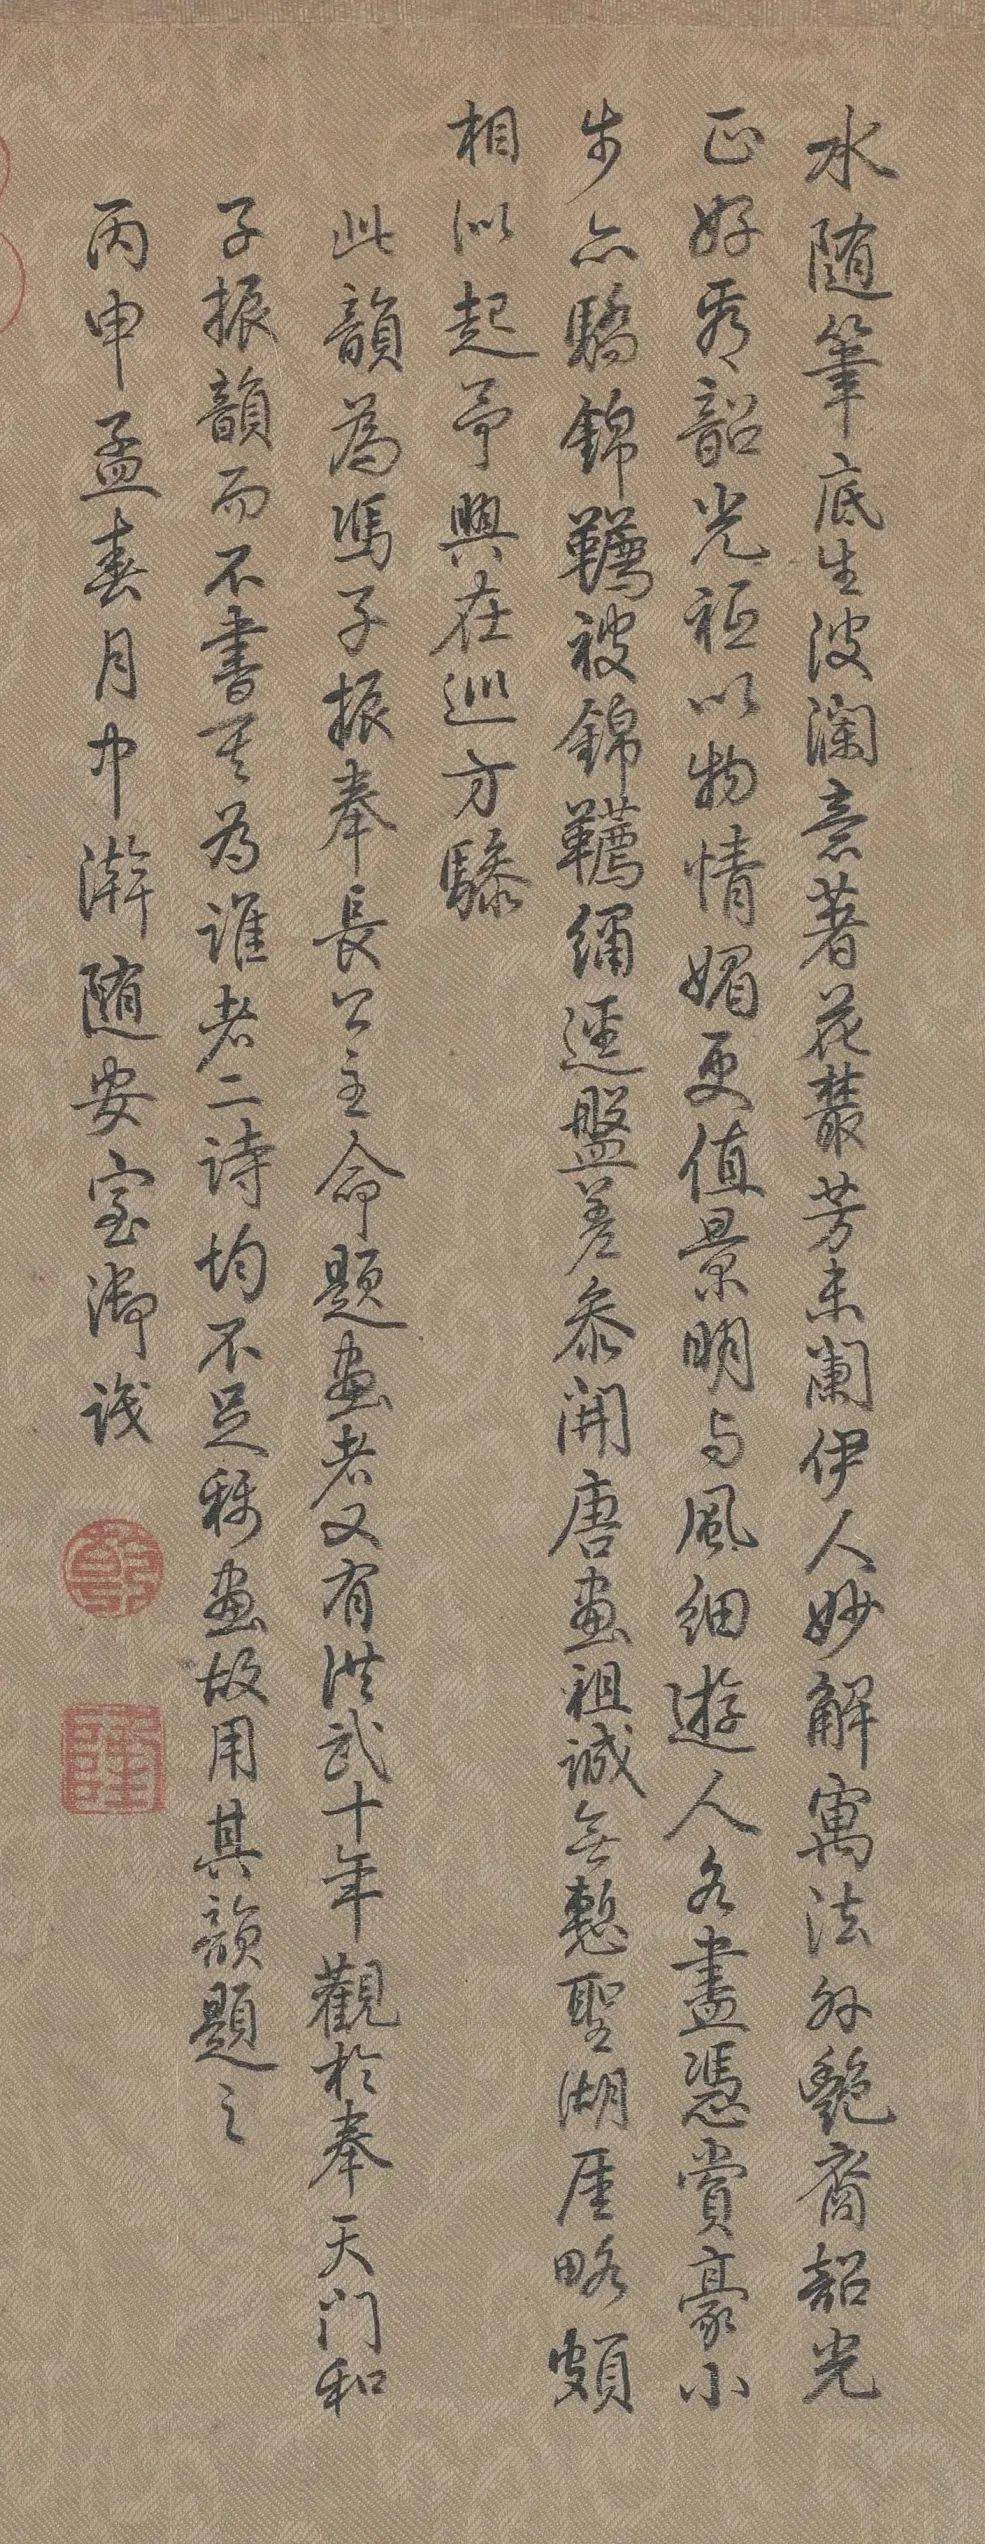 水随筆底生波瀾意著花叢芳未闌伊人妙解寓法外艶裔韶光
正好看韶光祗以物情媚更值景明与風細遊人各盡憑賞豪小
步亦驕錦韉被錦韉繩逕盤差参開唐畫祖誠無慙聖湖厓略頗
相似起予興在巡方驂
此韻為馮子振奉長公主命題畫者又有洪武十年觀於奉天门和
子振韻而不書其為誰者二詩均不足称畫故用其韻題之
丙申孟春月中澣随安室御識
乾
隆